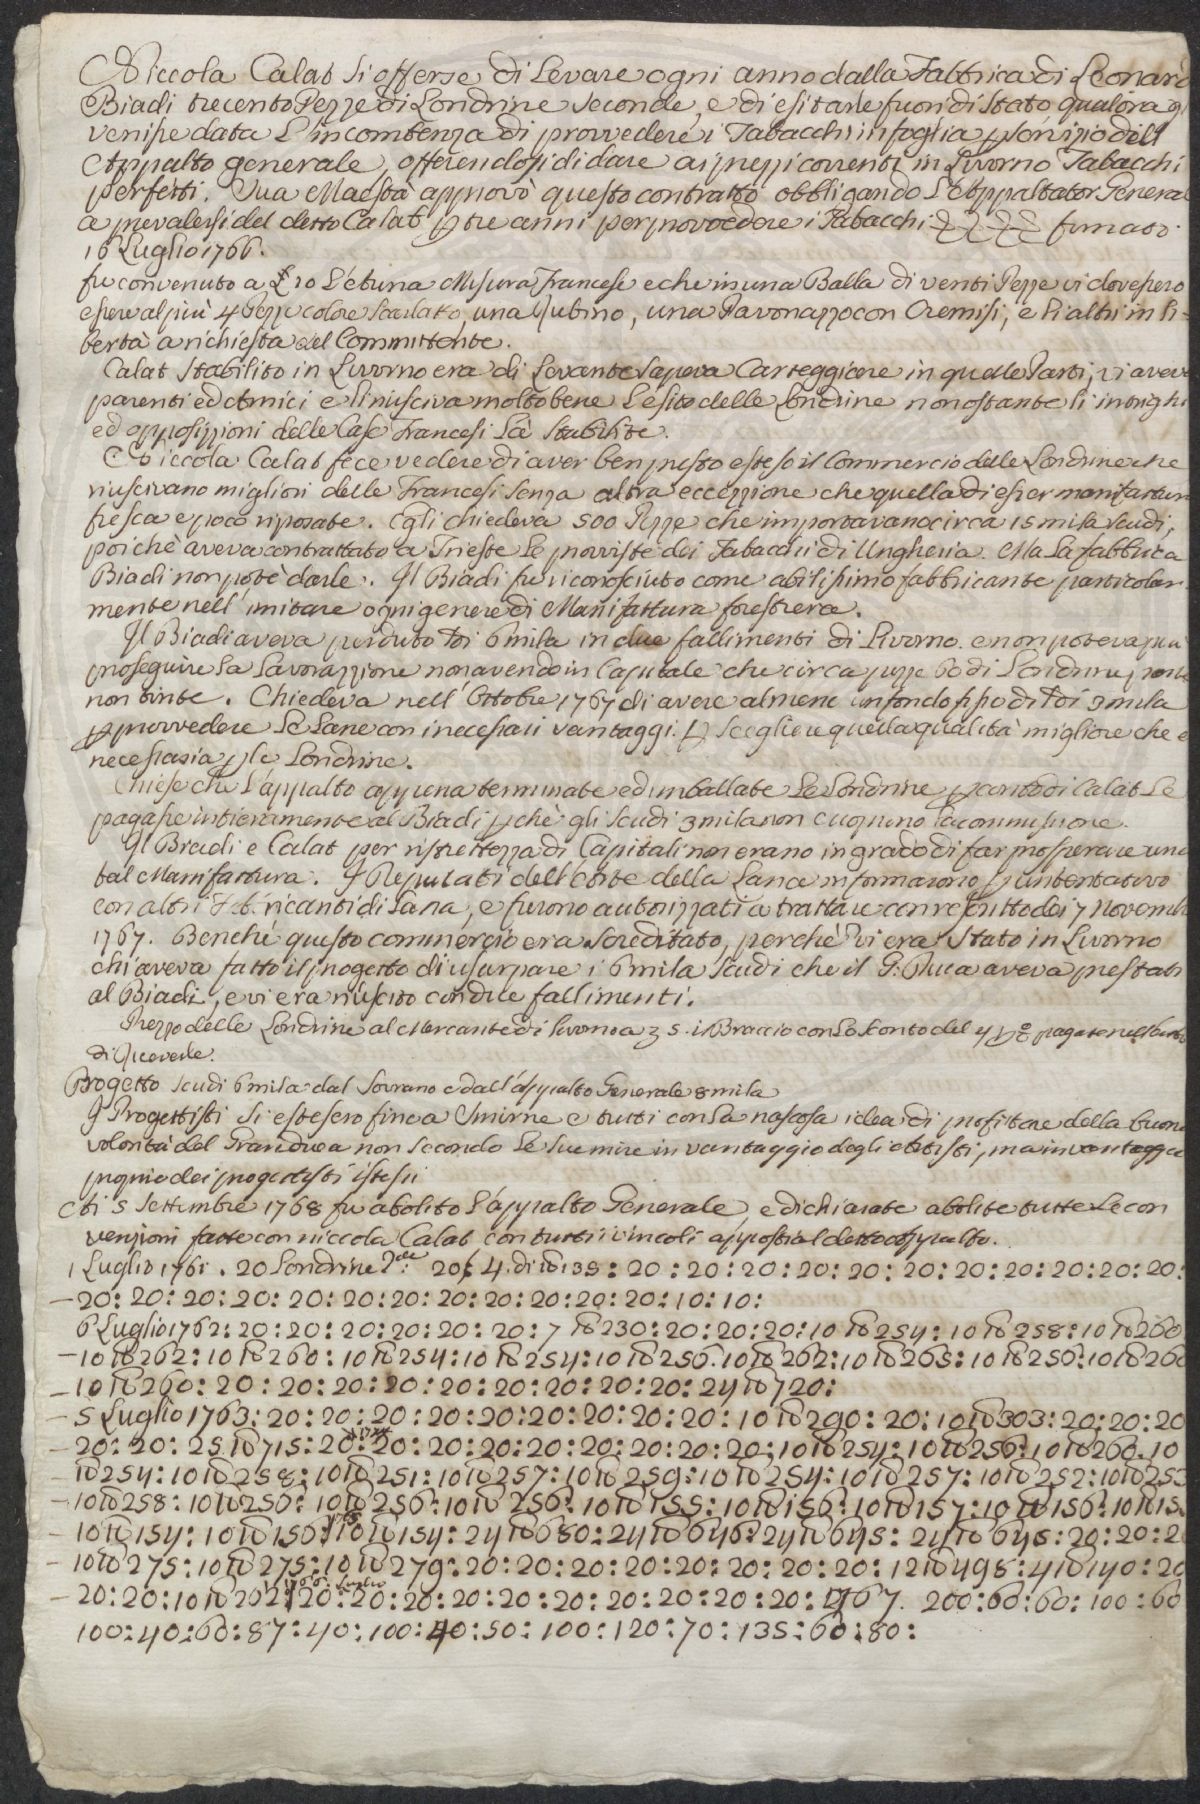 Niccola Calat si offerse di Levare ogni anno dalla Fabbrica di Leonardo
Biadi trecento Pezze di Londrine seconde, e di esitarle fuori di Stato qualora gli
venisse data L'incombenza di provvedere i Tabacchi in foglia p servizio dell
Appalto generale, offerendosi di dare ai prezzi correnti in Livorno Tabacchi
perfetti. Sua Maestà approvò questo contratto obbligando L'Appaltator General
a prevalersi del detto Calat p tre anni per provvedere i Tabacchi firmato
16 Luglio 1766.
fu convenuto a £ 10 L'etuna Misura Francese e che in una Balla di venti Pezze vi dovessero
essere al più 4 Pezze colore Scarlatto, una Rubino, una Pavonazzo con Cremisi, e li altri in li-
bertà a richiesta del Committente.
Calat Stabilito in Livorno era di Levante sapeva Carteggiare in quelle Parti, vi aveva
parenti ed Amici e li riusciva molto bene L'esito delle Londrine nonostante li intrighi
ed opposizzioni delle Case Francesi Là Stabilite.
Niccola Calat fece vedere di aver ben presto esteso il Commercio delle Londrine che
riuscivano migliori delle Francesi senza altra eccezzione che quella di esser manifattura
fresca e poco riposate. Egli chiedeva 500 Pezze che importavano circa 15 mila scudi,
poichè aveva contrattato a Trieste Le provviste dei Tabacchi di Ungheria. Ma La fabbrica
Biadi non potè darle. Il Biadi fu riconosciuto come abilissimo fabbricante particolar-
mente nell'imitare ogni genere di Manifattura forestiera.
Il Biadi aveva perduto 6 mila in due fallimenti di Livorno. e non poteva più
proseguire La Lavorazzione non avendo in Capitale che circa pezze 60 di Londrine
non tinte. Chiedeva nell'Ottobre 1767 di avere almeno un fondo fisso di 3 mila
p provvedere Le Lane con i necessari vantaggi. p Scegliere quella qualità migliore che è
necessaria p le Londrine.
Chiese che L'appalto appena terminate ed imballate Le Londrine p conto di Calat Le
pagasse intieramente al Biadi p chè gli scudi 3 mila non cuoprono La commissione.
Il Biadi e Calat per ristrettezza di Capitali non erano in grado di far prosperare una
tal Manifattura. I Deputati dell'Arte della Lana informarono p un tentativo
con altri Fabbricanti di Lana, e furono autorizzati a trattare con rescritto dei 7 Novembre
1767. Benchè questo commercio era screditato, perchè vi era Stato in Livorno
chi aveva fatto il progetto di usurpare i 6 mila scudi che il G. Duca aveva prestati
al Biadi, e vi era riuscito con due fallimenti.
Prezzo delle Londrine al Mercante di Livorno a 3 s. il Braccio con Lo sconto del 4 p % pagate
di Queverle.
Progetto scudi 6 mila dal Sovrano e dall'appalto Generale 8 mila
I Progettisti si estesero fino a Smirne e tutti con La nascosa idea di profittare della buona
volontà del Granduca non secondo Le sue mire in vantaggio degli Artisti, ma in vantaggio
proprio dei progettisti istessi
Ai 5 Settembre 1768 fu abolito L'appalto Generale, e dichiarate abolite tutte Le con
venzioni fatte con Niccola Calat con tutti i vincoli apposti al detto appalto.
1 Luglio 1761. 20 Londrine 2de 20 : 20 : 20 : 20 : 20 : 20 : 20 : 20 : 20 : 20 : 20 :
– 20 : 20 : 20 : 20 : 20 : 20 : 20 : 20 : 20 : 20 : 20 : 20 : 10 : 10 :
6 Luglio 1762 : 20 : 20 : 20 : 20 : 20 : 20 : 7 ₶ 230 : 20 : 20 : 20 : 10 ₶ 254 : 10 ₶ 258 : 10 ₶ 260
– 10 ₶ 262 : 10 ₶ 260 : 10 ₶ 254 : 10 ₶ 254 : 10 ₶ 256 : 10 ₶ 262 : 10 ₶ 265 : 10 ₶ 256 : 10 ₶ 260
– 10 ₶ 260 : 20 : 20 : 20 : 20 : 20 : 20 : 20 : 20 : 20 : 24 ₶ 720 :
– 5 Luglio 1763 : 20 : 20 : 20 : 20 : 20 : 20 : 20 : 20 : 20 : 10 ₶ 290 : 20 : 10 ₶ 303 : 20 : 20 : 20
– 20 : 20 : 25 ₶ 715 : 20 : 20 : 20 : 20 : 20 : 20 : 20 : 20 : 20 : 10 ₶ 254 : 10 ₶ 256 : 10 ₶ 260 : 10
– ₶ 254 : 10 ₶ 258 : 10 ₶ 251 : 10 ₶ 257 : 10 ₶ 259 : 10 ₶ 254 : 10 ₶ 257 : 10 ₶ 252 : 10 ₶ 253
– 10 ₶ 258 : 10 ₶ 256 : 10 ₶ 256 : 10 ₶ 256 : 10 ₶ 155 : 10 ₶ 156 : 10 ₶ 157 : 10 ₶ 156 : 10 ₶
– 10 ₶ 154 : 10 ₶ 156 : 10 ₶ 154 : 24 ₶ 680 : 24 ₶ 646 : 24 ₶ 645 : 24 ₶ 645 : 20 : 20 : 2
– 10 ₶ 275 : 10 ₶ 275 : 10 ₶ 279 : 20 : 20 : 20 : 20 : 20 : 20 : 20 : 20 : 12 ₶ 498 : 4 ₶ 140 : 20
– 20 : 20 : 10 ₶ 202 : 1766 Luglio 20 : 20 : 20 : 20 : 20 : 20 : 20 : 20 : 20 : 20 : 1767. 200 : 60 : 60 : 100 : 60
100 : 40 : 60 : 87 : 40 : 100 : 40 : 50 : 100 : 120 : 70 : 135 : 60 : 80 :